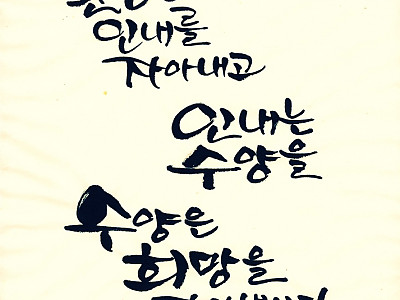 인내를
자아내고
인내는
수양을
수양은
희망을